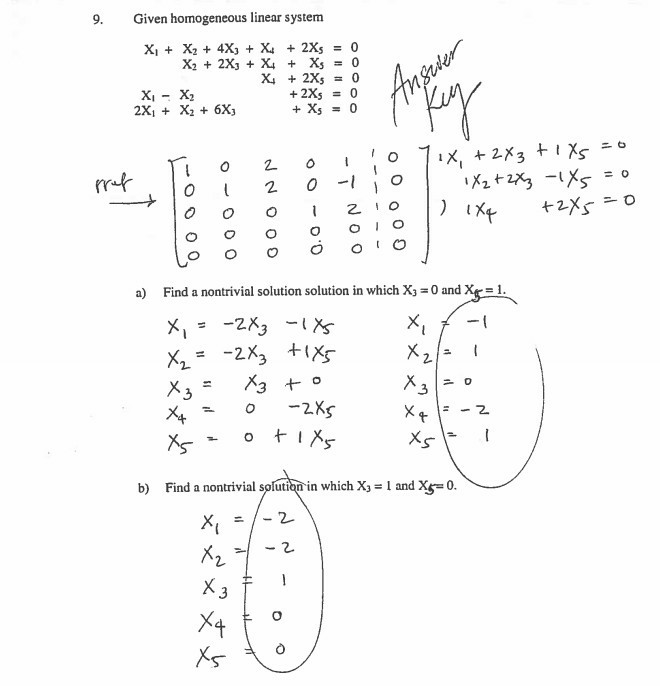 9. Given homogeneous linear system
X₁ + X₂ + 4X₃ + X₄ + 2X₅ = 0
X₂ + 2X₃ + X₄ + X₅ = 0
X₄ + 2X₅ = 0
X₁ - X₂ + 2X₅ = 0
2X₁ + X₂ + 6X₃ + X₅ = 0
Answer
Key
rref
1 0 2 0 1 0
0 1 2 0 -1 0
0 0 0 1 2 0
0 0 0 0 0 0
0 0 0 0 0 0
1X₁ + 2X₃ + 1X₅ = 0
1X₂ + 2X₃ - 1X₅ = 0
1X₄ + 2X₅ = 0
a) Find a nontrivial solution solution in which X₃ = 0 and X₅ = 1.
X₁ = -2X₃ - 1X₅
X₂ = -2X₃ + 1X₅
X₃ = X₃ + 0
X₄ = 0 - 2X₅
X₅ = 0 + 1X₅
X₁ = -1
X₂ = 1
X₃ = 0
X₄ = -2
X₅ = 1
b) Find a nontrivial solution in which X₃ = 1 and X₅ = 0.
X₁ = -2
X₂ = -2
X₃ = 1
X₄ = 0
X₅ = 0